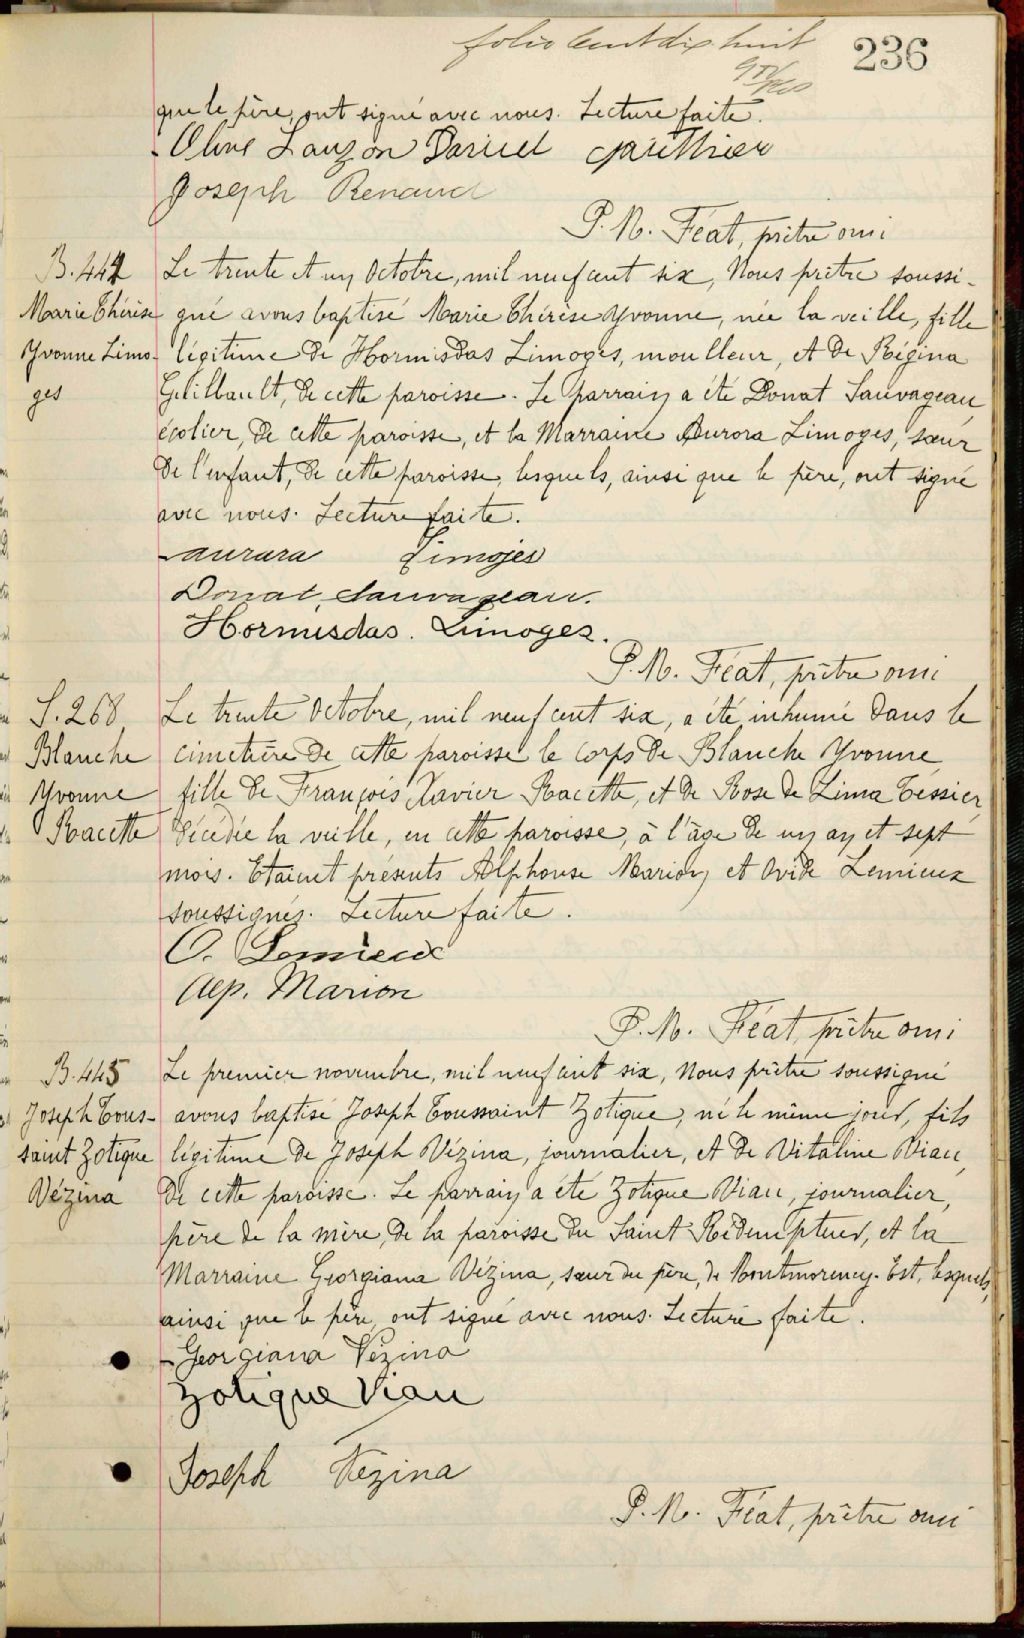 folio cent dix huit
236
que le père, ont signé avec nous. Lecture faite.
Olive Lauzon Daniel Gauthier
Joseph Renaud
P. M. Féat, prêtre omi
B. 444
Marie Thérèse
Yvonne Limo-
ges
Le trente et un Octobre, mil neuf cent six, Nous prêtre soussi-
gné avons baptisé Marie Thérèse Yvonne, née la veille, fille
légitime de Hormisdas Limoges, mouleur, et de Régina
Guilbault, de cette paroisse. Le parrain a été Donat Sauvageau
écolier, de cette paroisse, et la Marraine Aurora Limoges, sœur
de l'enfant, de cette paroisse, lesquels, ainsi que le père, ont signé
avec nous. Lecture faite.
aurora Limojes
Donat Sauvageau.
Hormisdas. Limoges.
P. M. Féat, prêtre omi
S. 268
Blanche
Yvonne
Racette
Le trente Octobre, mil neuf cent six, a été inhumé dans le
cimetière de cette paroisse le corps de Blanche Yvonne
fille de François Xavier Racette, et de Rose de Lima Tessier
décédée la veille, en cette paroisse, à l'âge de un an et sept
mois. Etaient présents Alphonse Marion et Ovide Lemieux
soussignés. Lecture faite.
O. Lemieux
Alp. Marion
P. M. Féat, prêtre omi
B. 445
Joseph Tous-
saint Zotique
Vézina
Le premier novembre, mil neuf cent six, Nous prêtre soussigné
avons baptisé Joseph Toussaint Zotique, né le même jour, fils
légitime de Joseph Vézina, journalier, et de Vitaline Viau,
de cette paroisse. Le parrain a été Zotique Viau, journalier,
père de la mère, de la paroisse du Saint Rédempteur, et la
Marraine Georgiana Vézina, sœur du père, de Montmorency. Est, lesquels,
ainsi que le père, ont signé avec nous. Lecture faite.
Georgiana Vézina
Zotique Viau
Joseph Vézina
P. M. Féat, prêtre omi